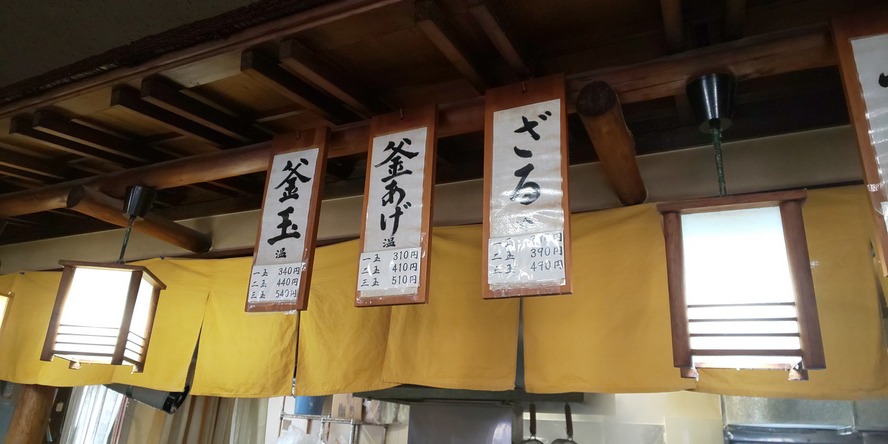 釜玉
温
一玉 340円
二玉 440円
三玉 540円
釜あげ
温
一玉 310円
二玉 410円
三玉 510円
ざる
二玉 390円
三玉 490円